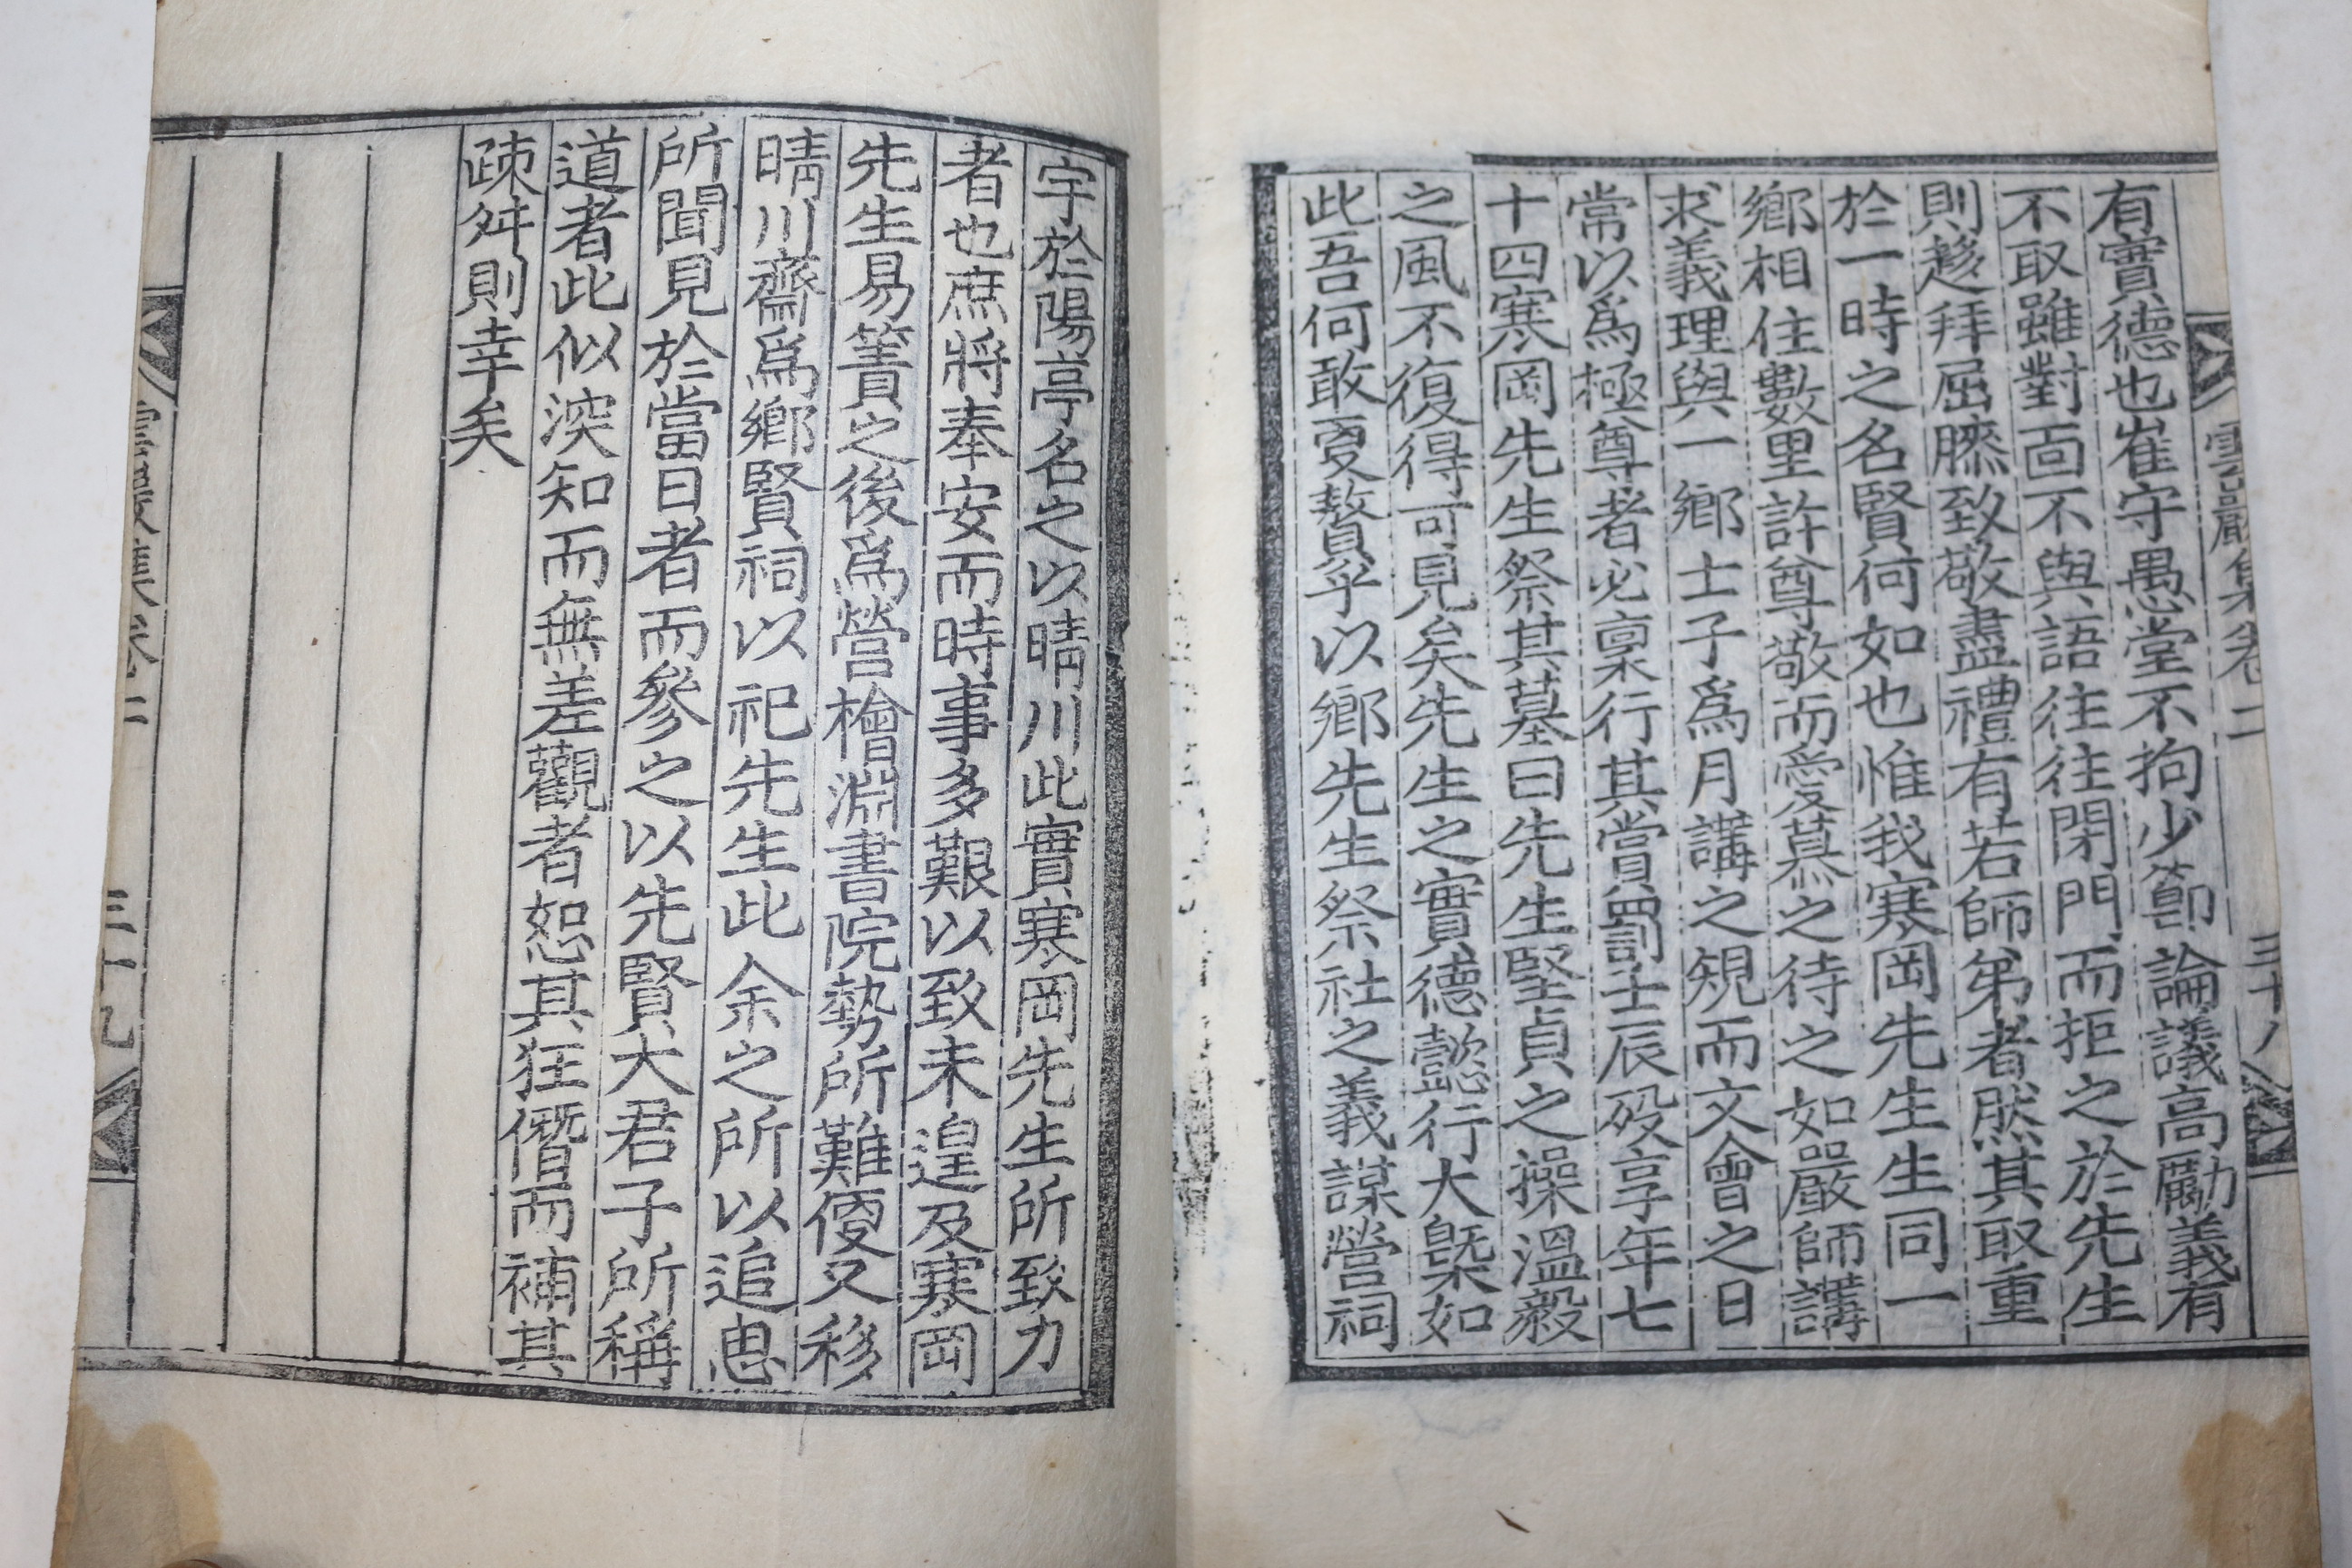 雲巖集卷二
三十八
有實德也崔守愚堂不拘少節論議高勵義有
不取雖對面不與語往往閉門而拒之於先生
則趍拜屈膝致敬盡禮有若師弟者然其取重
於一時之名賢何如也惟我寒岡先生生同一
鄉相住數里許尊敬而愛慕之待之如嚴師講
求義理與一鄉士子爲月講之規而文會之日
常以爲極尊者必稟行其賞罰壬辰歿享年七
十四寒岡先生祭其墓曰先生堅貞之操溫毅
之風不復得可見矣先生之實德懿行大槩如
此吾何敢更贅乎以鄉先生祭社之義謀營祠
宇於陽亭名之以晴川此實寒岡先生所致力
者也庶將奉安而時事多艱以致未遑及寒岡
先生易簀之後爲營檜淵書院勢所難便又移
晴川齋爲鄉賢祠以祀先生此余之所以追思
所聞見於當日者而參之以先賢大君子所稱
道者此似深知而無差觀者恕其狂僭而補其
疎舛則幸矣
雲巖集卷二
三十九